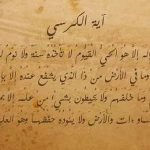 آية الكرسي
له إلا هو الحي القيوم لا تأخذه سنة ولا نوم
وما في الأرض من ذا الذي يشفع عنده إلا
وما خلفهم ولا يحيطون بشيء من علمه إلا
والأرض ولا يئوده حفظهما وهو